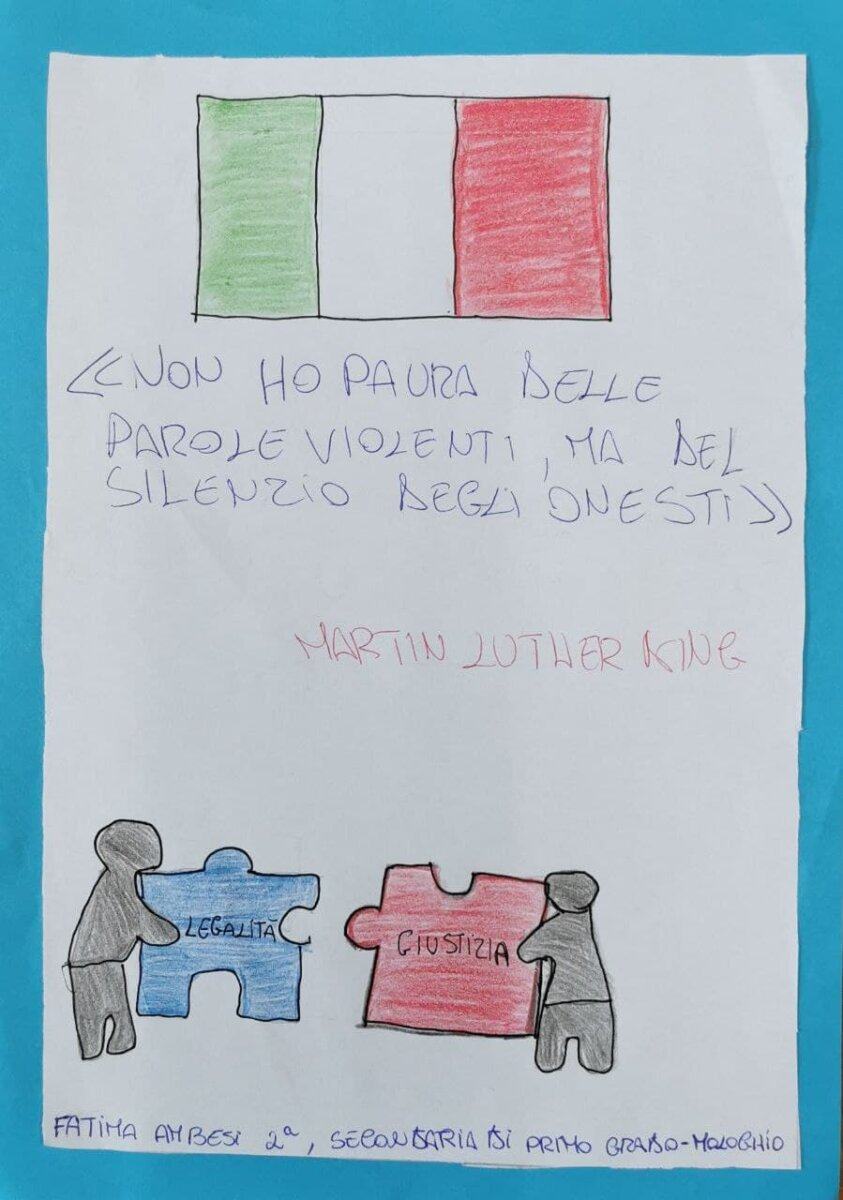 <<NON HO PAURA DELLE
PAROLE VIOLENTI, MA DEL
SILENZIO DEGLI ONESTI>>
MARTIN LUTHER KING
LEGALITÀ
GIUSTIZIA
FATIMA AMBESI 2ª, SECONDARIA DI PRIMO GRADO-MOLOCHIO